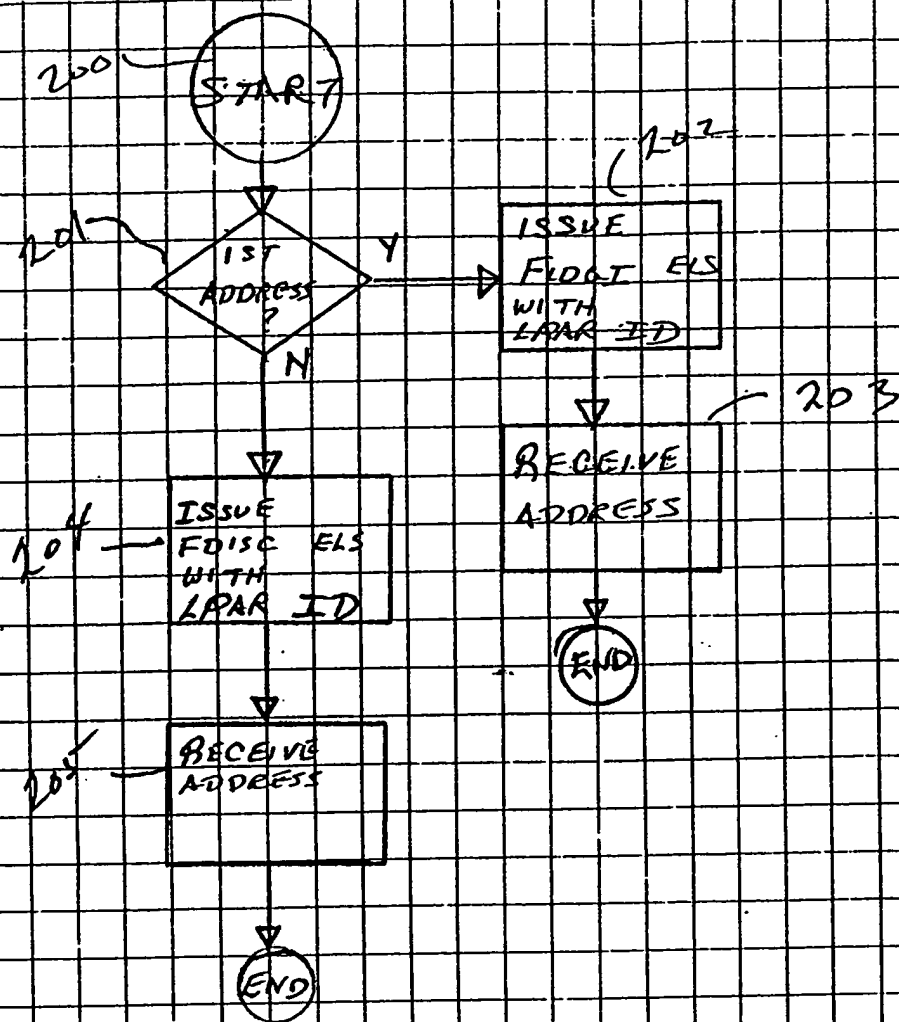 200
START
202
201
1ST
ADDRESS
?
Y
N
ISSUE
FLOGI ELS
WITH
LPAR ID
203
RECEIVE
ADDRESS
END
204
ISSUE
FDISC ELS
WITH
LPAR ID
205
RECEIVE
ADDRESS
END